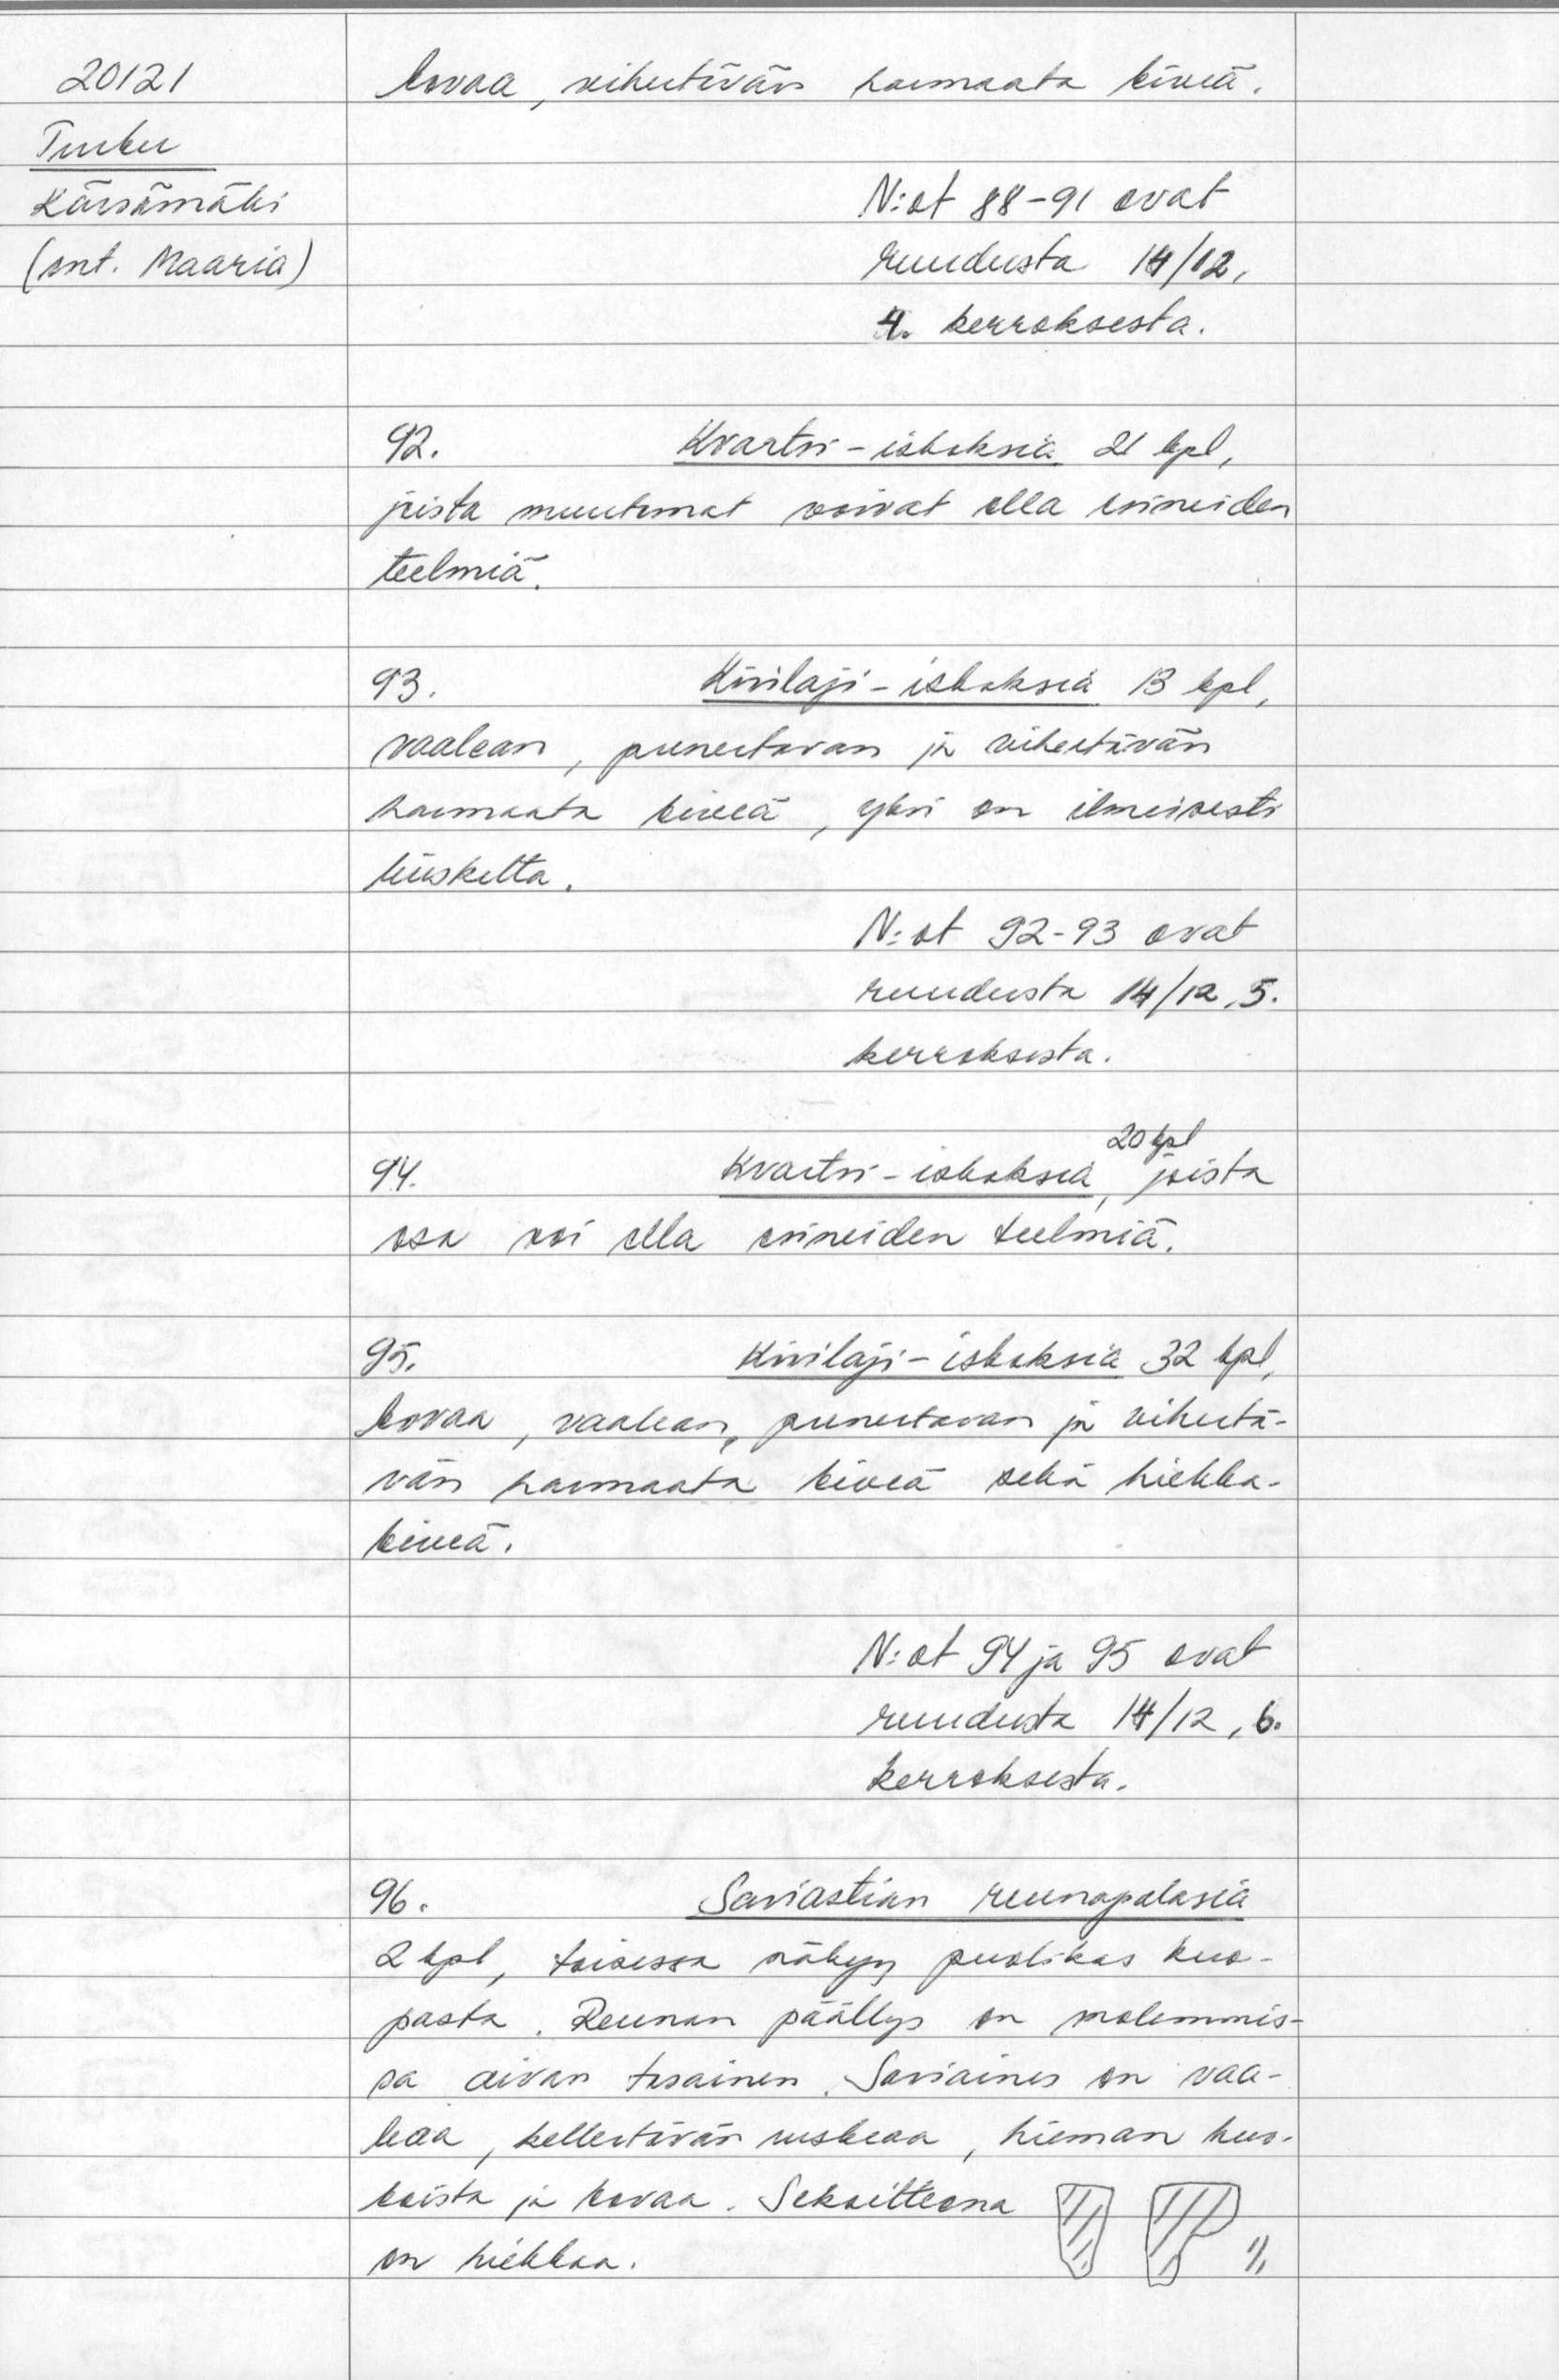 20121
Turku
Kärsämäki
(ent. Maaria)
kovaa, vihertävän harmaata kiveä.
N:ot 88-91 ovat
ruudusta 14/12,
4. kerroksesta.
92. Kvartsi-iskoksia 21 kpl,
joista muutamat voivat olla esineiden
teelmiä.
93. Kivilaji-iskoksia 13 kpl,
vaalean, punertavan ja vihertävän
harmaata kiveä, yksi on ilmeisesti
liusketta.
N:ot 92-93 ovat
ruudusta 14/12, 5.
kerroksesta.
94. Kvartsi-iskoksia, 20 kpl joista
osa voi olla esineiden teelmiä.
95. Kivilaji-iskoksia 32 kpl,
kovaa, vaalean, punertavan ja vihertä-
vän harmaata kiveä sekä hiekka-
kiveä.
N:ot 94 ja 95 ovat
ruudusta 14/12, 6.
kerroksesta.
96. Saviastian reunapalasia
2 kpl, toisessa näkyy puolikas kuo-
pasta. Reunan päällys on molemmis-
sa aivan tasainen. Saviaines on vaa-
leaa, kellertävän ruskeaa, hieman huo-
koista ja kovaa. Sekoitteena
on hiekkaa.
1/1